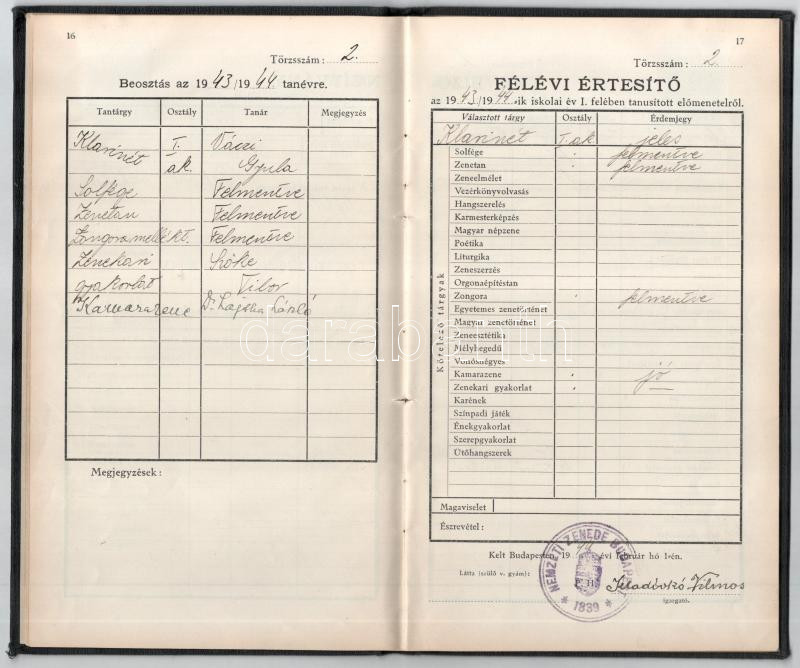 16
Törzsszám: 2.
Beosztás az 1943/1944. tanévre.
Tantárgy Osztály Tanár Megjegyzés
Klarinét I. Váczi
ak. Gyula
Solfége Felmentve
Zenetan Felmentve
Zongora mellékt. Felmentve
Zenekari
gyakorlat Tibor
Kamarazene Dr. László
Megjegyzések:
17
Törzsszám: 2.
FÉLÉVI ÉRTESÍTŐ
az 1943/1944.-ik iskolai év I. felében tanusított előmenetelről.
Választott tárgy Osztály Érdemjegy
Klarinét I. ak. jeles
Kötelező tárgyak
Solfége felmentve
Zenetan felmentve
Zeneelmélet
Vezérkönyvolvasás
Hangszerelés
Karmesterképzés
Magyar népzene
Poétika
Liturgika
Zeneszerzés
Orgonaépítéstan
Zongora felmentve
Egyetemes zenetörténet
Magyar zenetörténet
Zeneesztétika
Mélyhegedű
Vonósnégyes
Kamarazene jó
Zenekari gyakorlat
Karének
Színpadi játék
Énekgyakorlat
Szerepgyakorlat
Ütőhangszerek
Magaviselet
Észrevétel:
Kelt Budapesten 1944 évi február hó 1-én.
Látta (szülő v. gyám):
P. H.
NEMZETI ZENEDE BUDAPEST
1839
Vilmos
igazgató.
darabanth